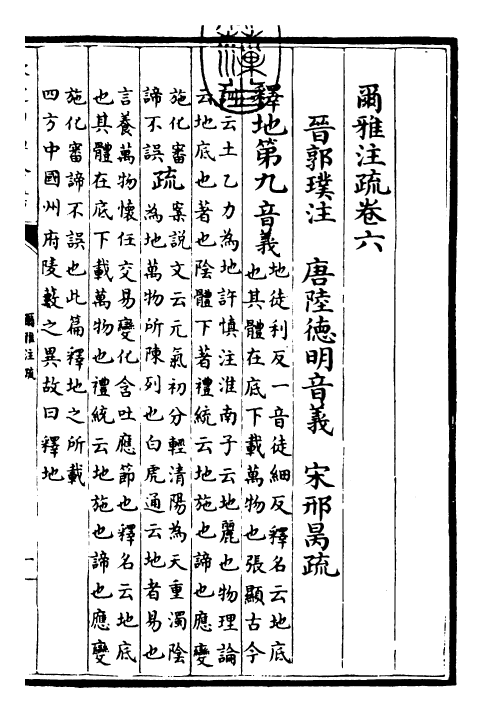 爾雅注疏卷六
晉郭璞注　唐陸徳明音義　宋邢昺疏
釋地第九 音義 地徒利反一音徒細反釋名云地底
也其體在底下載萬物也張顯古今
云土乙力為地許慎注淮南子云地麗也物理論
云地底也著也陰體下著禮統云地施也諦也應變
施化審
諦不誤
疏 案說文云元氣初分輕清陽為天重濁陰
為地萬物所陳列也白虎通云地者易也
言養萬物懷任交易變化含吐應節也釋名云地底
也其體在底下載萬物也禮統云地施也諦也應變
施化審諦不誤也此篇釋地之所載
四方中國州府陵藪之異故曰釋地
爾雅注疏
一